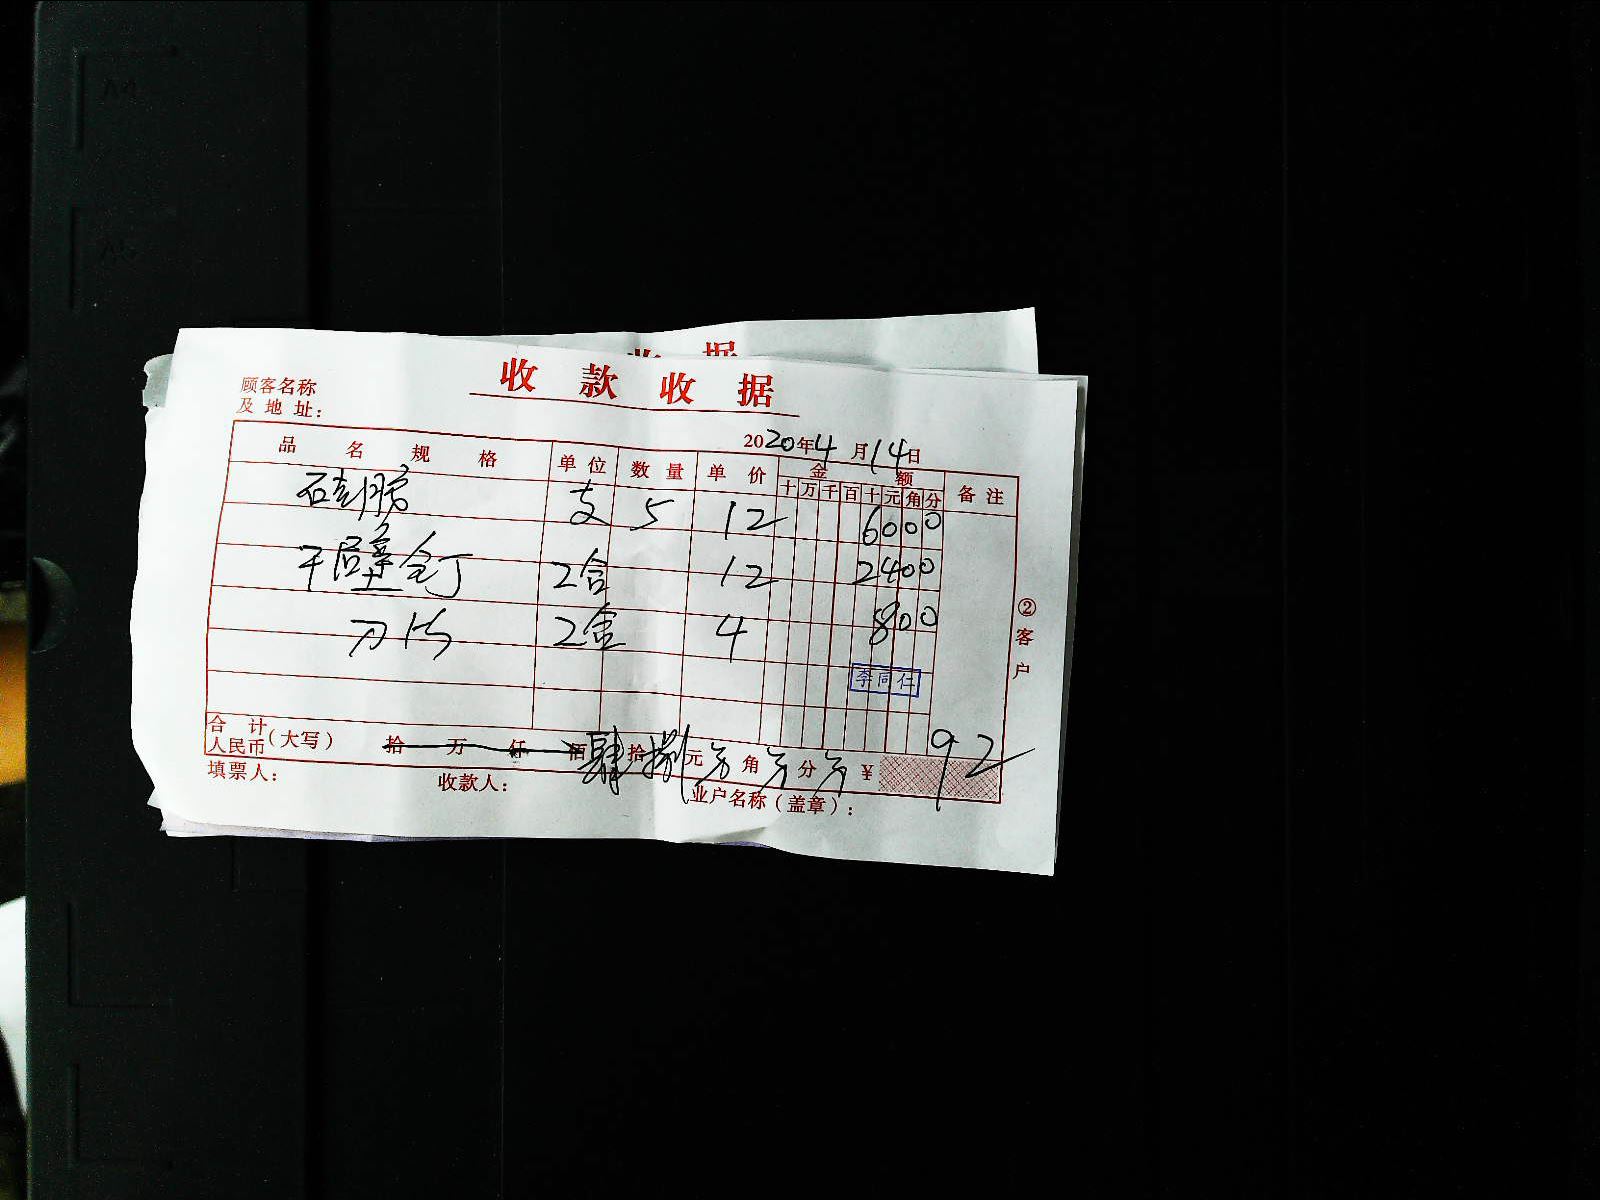 收款收据
顾客名称
及地址：
2020年4月14日
品名规格 单位 数量 单价 金额 备注
十万千百十元角分
硅胶 支 5 12 6000
干壁钉 2合 12 2400
刀片 2盒 4 800
李同仁
②客户
合计
人民币(大写) 拾万仟佰肆拾捌元 角 分 ¥ 92
填票人： 收款人： 业户名称(盖章)：